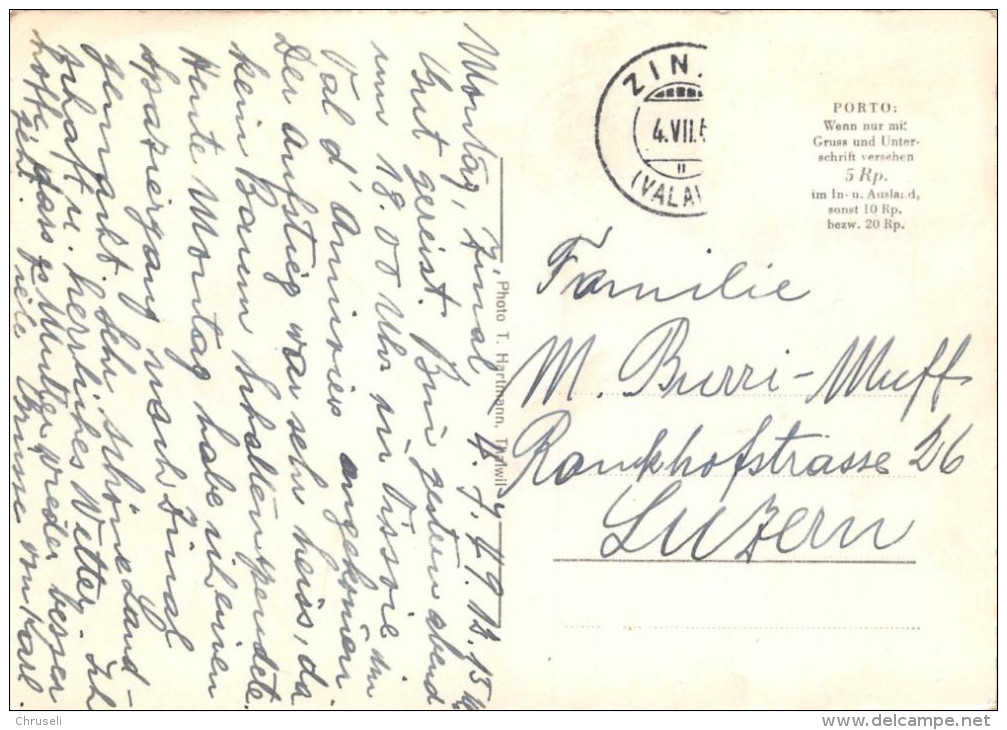 Montag, Zinal, 4.7.49 13.15 Uhr
Gut gereist. Bin gestern abend
um 18.00 Uhr in Vissoie im
Val d'Anniviers angekommen
Der Aufstieg war sehr heiss, da
kein Baum Schatten spendete.
Heute Montag habe ich einen
Spaziergang nach Zinal
gemacht. Sehr schöne Land-
schaft u. herrliches Wetter. Ich
hoffe, dass es Mutter wieder besser
geht. Viele Grüsse von Karl
Photo T. Hartmann, Thalwil
ZIN
4.VII.
(VALAI
PORTO:
Wenn nur mit
Gruss und Unter-
schrift versehen
5 Rp.
im In- u. Ausland,
sonst 10 Rp.
bezw. 20 Rp.
Familie
M. Burri-Muff
Rankhofstrasse 26
Luzern
Chruseli
www.delcampe.net